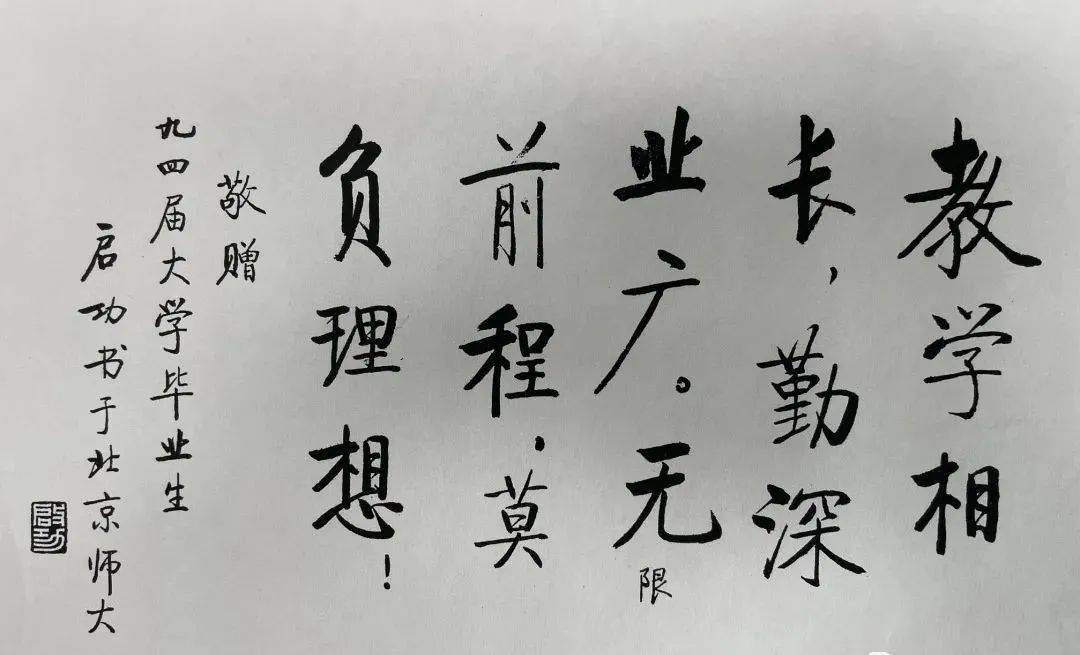 教学相
长，勤深
业广。无限
前程，莫
负理想！
敬赠
九四届大学毕业生
启功书于北京师大
启功